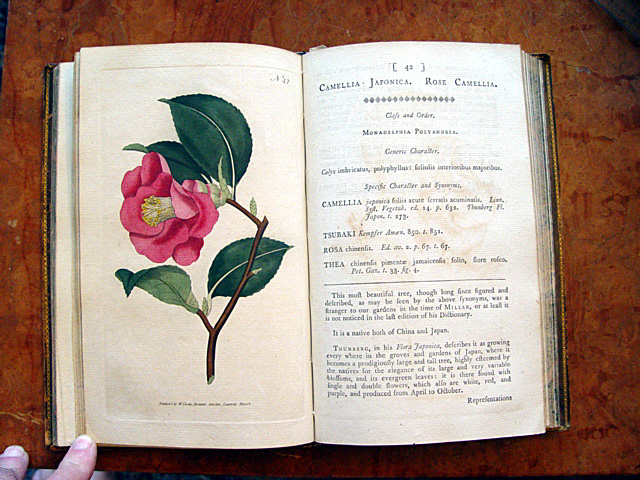 No 42
[ 42 ]
CAMELLIA JAPONICA. ROSE CAMELLIA.
Claſs and Order.
MONADELPHIA POLYANDRIA.
Generic Character.
Calyx imbricatus, polyphyllus: foliolis interioribus majoribus.
Specific Character and Synonyms.
CAMELLIA japonica foliis acute ſerratis acuminatis. Linn.
Syſt. Vegetab. ed. 14. p. 632. Thunberg Fl.
Japon. t. 273.
TSUBAKI Kempfer Amœn. 850. t. 851.
ROSA chinenſis. Ed. av. 2. p. 67. t. 67.
THEA chinenſis pimentæ jamaicenſis folio, flore roſeo.
Pet. Gaz. t. 33. fig. 4.
This moſt beautiful tree, though long ſince figured and
deſcribed, as may be ſeen by the above ſynonyms, was a
ſtranger to our gardens in the time of MILLER, or at leaſt it
is not noticed in the laſt edition of his Dictionary.
It is a native both of China and Japan.
THUNBERG, in his Flora Japonica, deſcribes it as growing
every where in the groves and gardens of Japan, where it
becomes a prodigiouſly large and tall tree, highly eſteemed by
the natives for the elegance of its large and very variable
bloſſoms, and its evergreen leaves: it is there found with
ſingle and double flowers, which alſo are white, red, and
purple, and produced from April to October.
Repreſentations